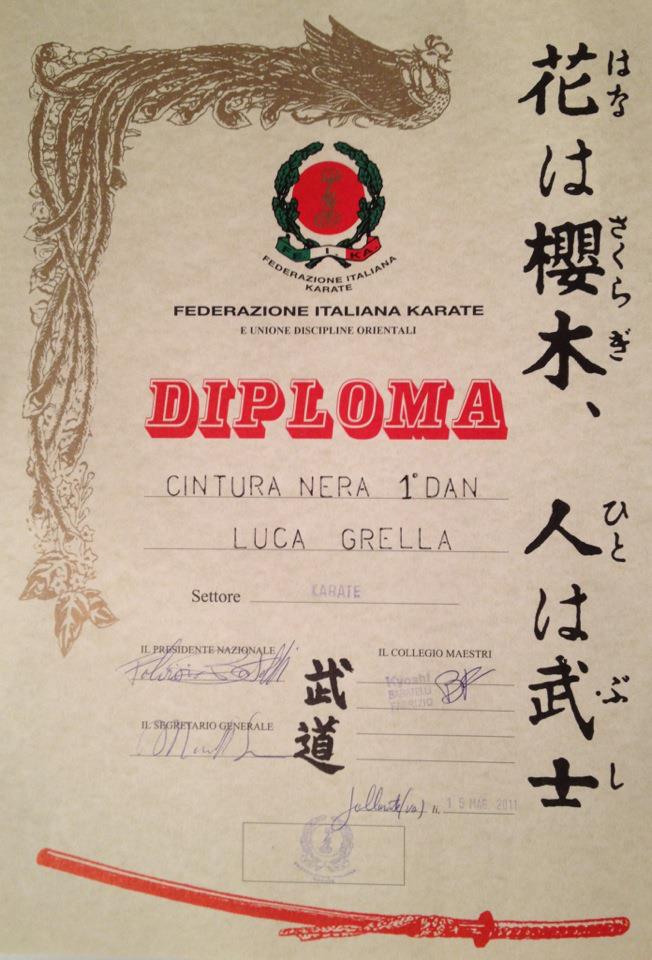 花は櫻木、人は武士
はな
さくらぎ
ひと
ぶし
FE. I. KA.
FEDERAZIONE ITALIANA
KARATE
FEDERAZIONE ITALIANA KARATE
E UNIONE DISCIPLINE ORIENTALI
DIPLOMA
CINTURA NERA 1° DAN
LUCA GRELLA
Settore KARATE
IL PRESIDENTE NAZIONALE
IL COLLEGIO MAESTRI
Kyoshi
BARATELLI
FABRIZIO
IL SEGRETARIO GENERALE
武道
Gallarate (va) li, 15 MAG 2011